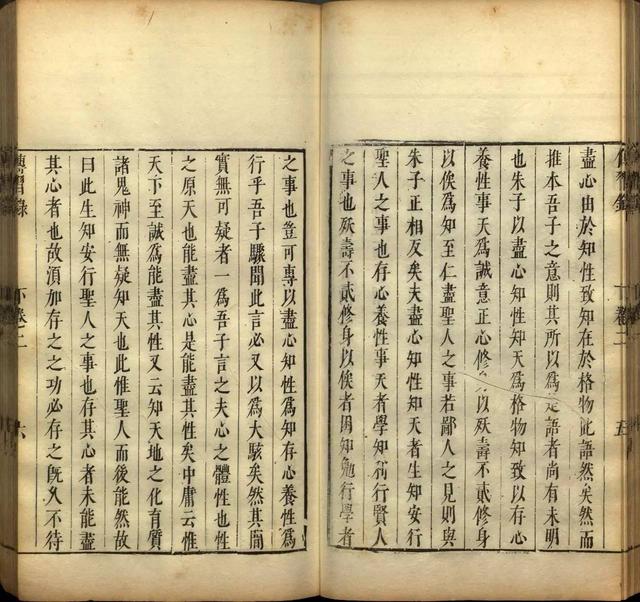 傳習錄 卷二 五
盡心由於知性致知在於格物此語然矣然而
推本吾子之意則其所以爲是語者尚有未明
也朱子以盡心知性知天爲格物知致以存心
養性事天爲誠意正心修身以殀壽不貳修身
以俟爲知至仁盡聖人之事若鄙人之見則與
朱子正相反矣夫盡心知性知天者生知安行
聖人之事也存心養性事天者學知利行賢人
之事也殀壽不貳修身以俟者困知勉行學者
之事也豈可專以盡心知性爲知存心養性爲
行乎吾子驟聞此言必又以爲大駭矣然其間
實無可疑者一爲吾子言之夫心之體性也性
之原天也能盡其心是能盡其性矣中庸云惟
天下至誠爲能盡其性又云知天地之化育質
諸鬼神而無疑知天也此惟聖人而後能然故
曰此生知安行聖人之事也存其心者未能盡
其心者也故須加存之之功必存之既久不待
傳習錄 下卷二 六